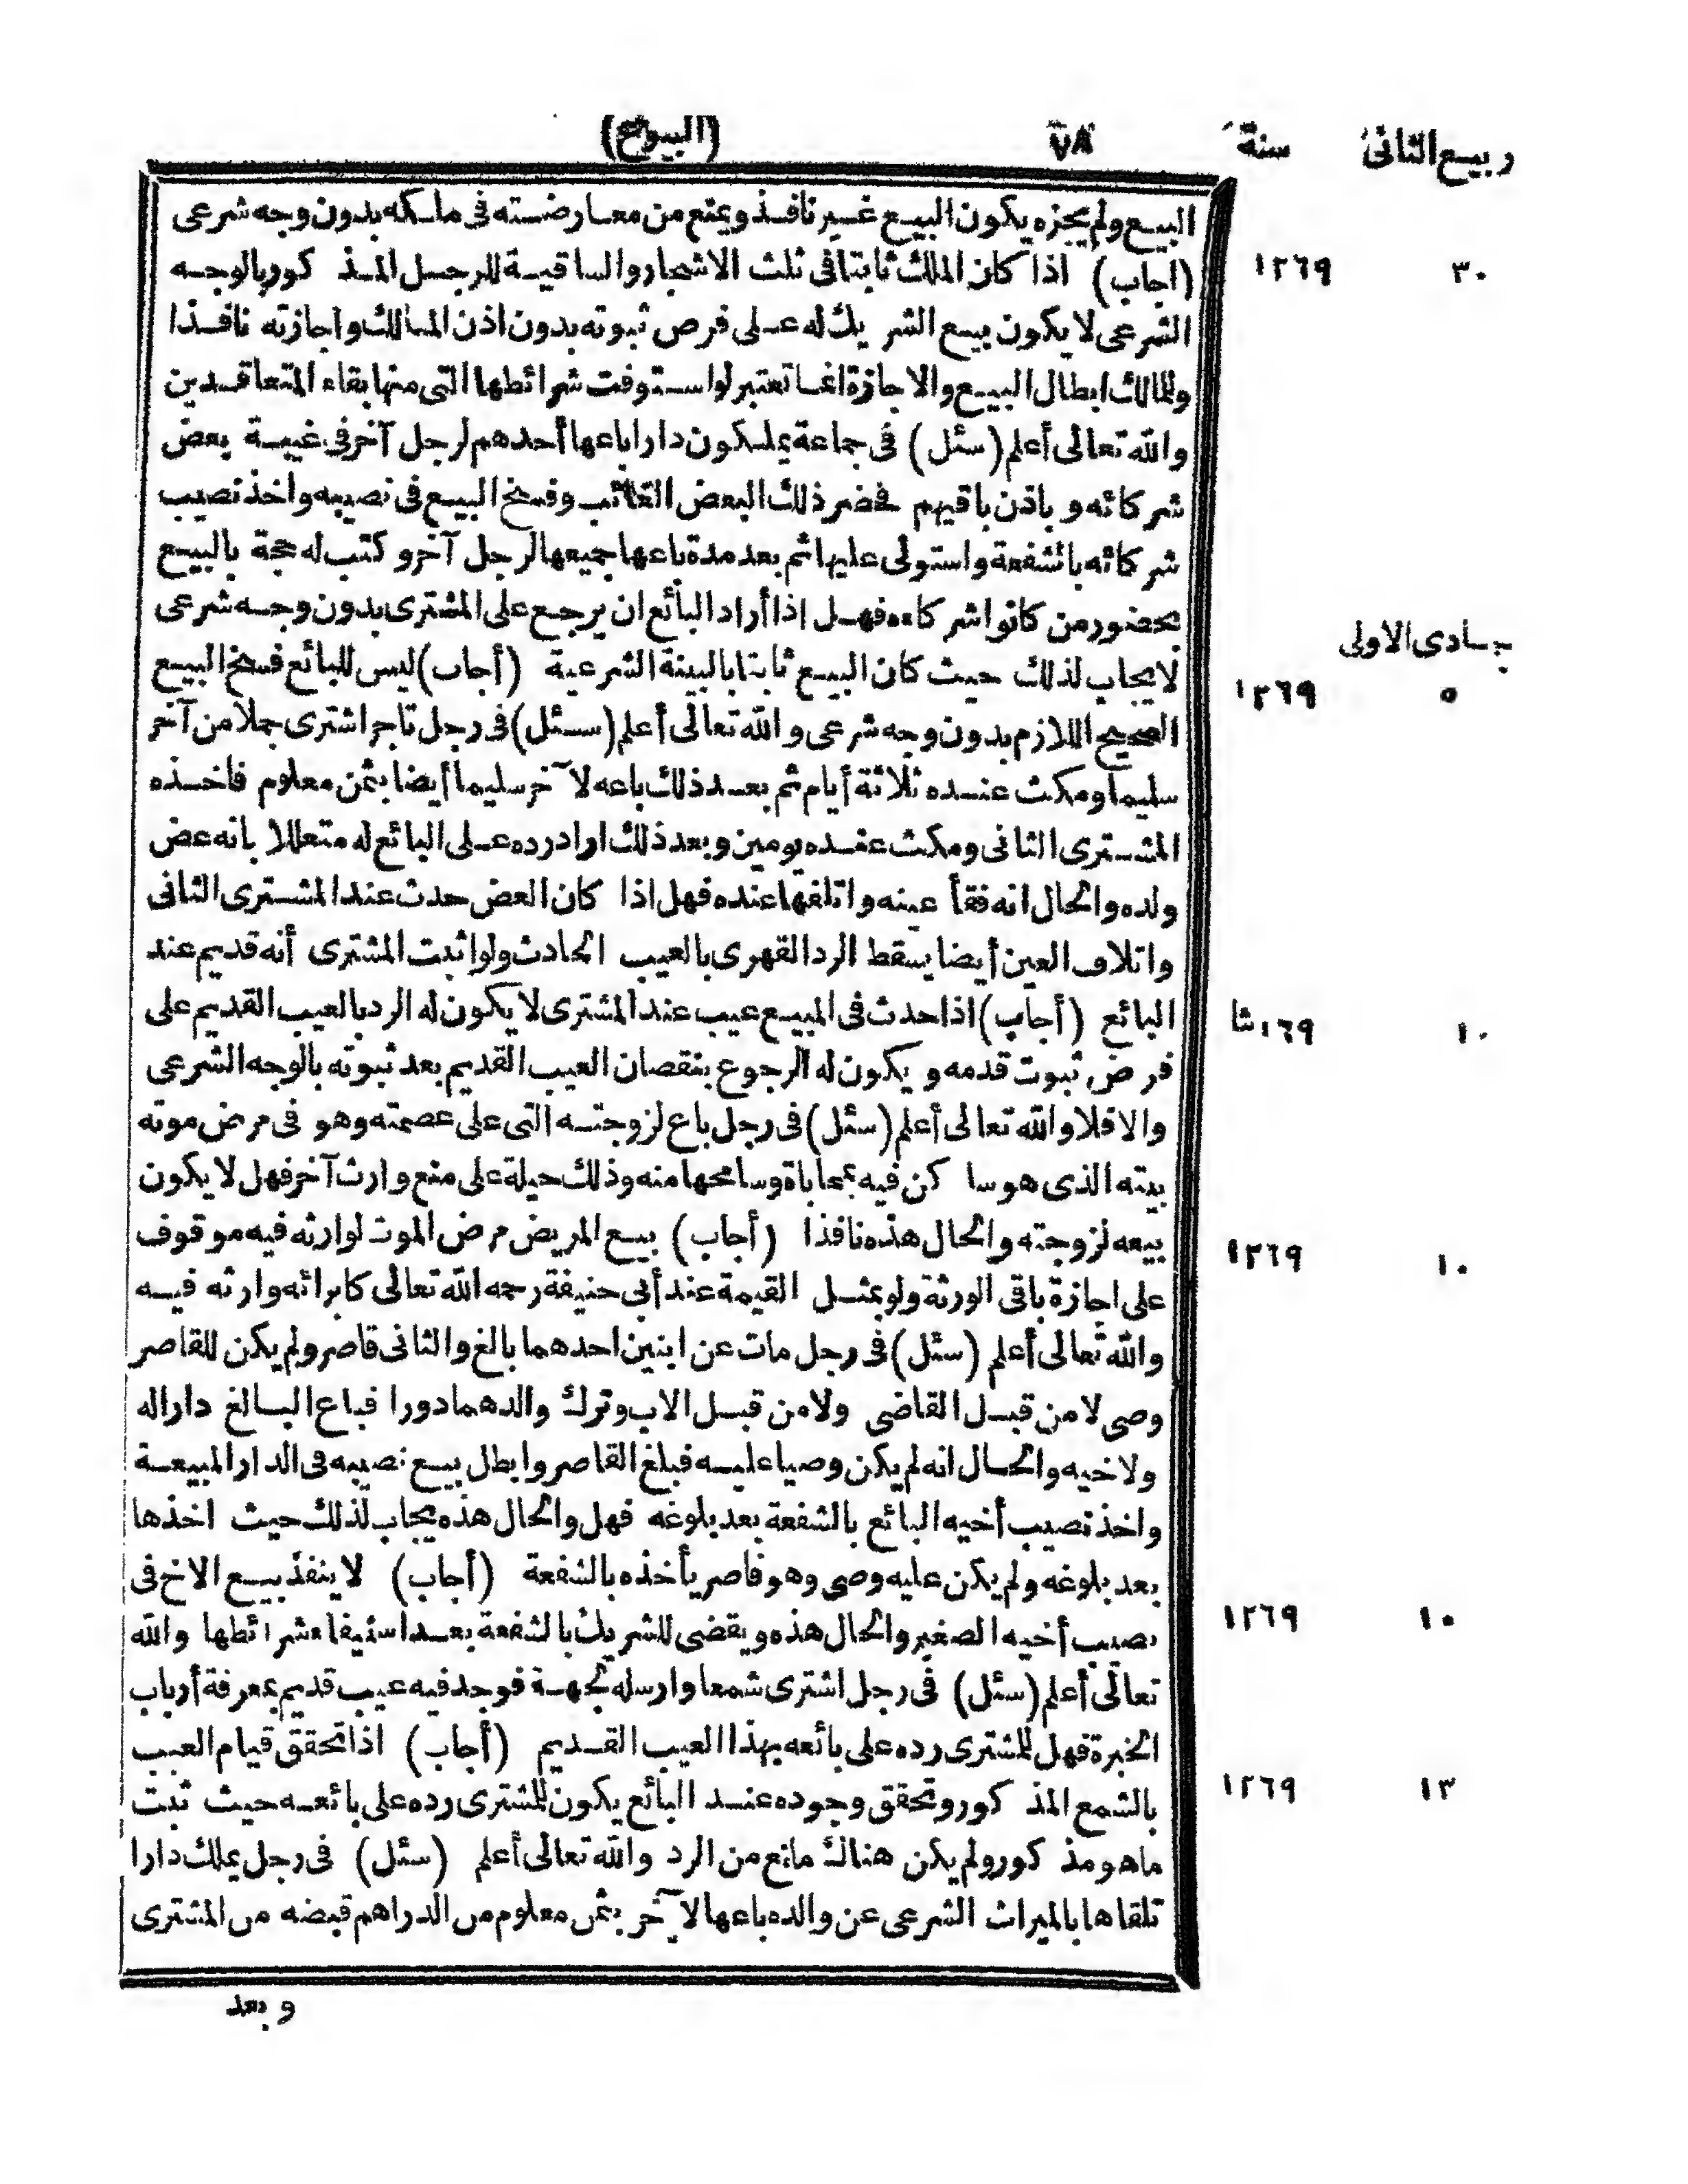 ربيع الثانى سنة ٧٨ (البيوع)
البيع ولم يجزه يكون البيع غير نافذ ويمنع من معارضته فى ملكه بدون وجه شرعى
(اجاب) اذا كان الملك ثابتا فى ثلث الاشجار والساقية للرجل المذكور بالوجه
٣٠ ١٢٦٩
الشرعى لا يكون بيع الشريك له على فرض ثبوته بدون اذن المالك واجازته نافذا
وللمالك ابطال البيع والاجازة انما تعتبر لو استوفت شرائطها التى منها بقاء المتعاقدين
والله تعالى أعلم (سئل) فى جماعة يملكون دارا باعها أحدهم لرجل آخر فى غيبة بعض
شركائه وباذن باقيهم فحضر ذلك البعض الغائب وفسخ البيع فى نصيبه واخذ نصيب
شركائه بالشفعة واستولى عليها ثم بعد مدة باعها جميعها لرجل آخر وكتب له حجة بالبيع
بحضور من كانوا شركاءه فهل اذا أراد البائع ان يرجع على المشترى بدون وجه شرعى
جمادى الاولى
لا يجاب لذلك حيث كان البيع ثابتا بالبينة الشرعية (أجاب) ليس للبائع فسخ البيع
٥ ١٢٦٩
الصحيح اللازم بدون وجه شرعى والله تعالى أعلم (سئل) فى رجل تاجر اشترى جملا من آخر
سليما ومكث عنده ثلاثة أيام ثم بعد ذلك باعه لآخر سليما أيضا بثمن معلوم فاخذه
المشترى الثانى ومكث عنده يومين وبعد ذلك اراد رده على البائع له متعللا بانه عض
ولده والحال انه فقأ عينه واتلفها عنده فهل اذا كان العض حدث عند المشترى الثانى
واتلاف العين أيضا يسقط الرد القهرى بالعيب الحادث ولو اثبت المشترى أنه قديم عند
البائع (أجاب) اذا حدث فى المبيع عيب عند المشترى لا يكون له الرد بالعيب القديم على
١٠ ١٦٩ شا
فرض ثبوت قدمه ويكون له الرجوع بنقصان العيب القديم بعد ثبوته بالوجه الشرعى
والا فلا والله تعالى أعلم (سئل) فى رجل باع لزوجته التى على عصمته وهو فى مرض موته
بيته الذى هو ساكن فيه بمحاباة وسامحها منه وذلك حيلة على منع وارث آخر فهل لا يكون
بيعه لزوجته والحال هذه نافذا (أجاب) بيع المريض مرض الموت لوارثه فيه موقوف
١٠ ١٢٦٩
على اجازة باقى الورثة ولو بمثل القيمة عند أبى حنيفة رحمه الله تعالى كابرائه وارثه فيه
والله تعالى أعلم (سئل) فى رجل مات عن ابنين احدهما بالغ والثانى قاصر ولم يكن للقاصر
وصى لا من قبل القاضى ولا من قبل الاب وترك والدهما دورا فباع البالغ دارا له
ولاخيه والحال انه لم يكن وصيا عليه فبلغ القاصر وابطل بيع نصيبه فى الدار المبيعة
واخذ نصيب أخيه البائع بالشفعة بعد بلوغه فهل والحال هذه يجاب لذلك حيث اخذها
بعد بلوغه ولم يكن عليه وصى وهو قاصر يأخذه بالشفعة (أجاب) لا ينفذ بيع الاخ فى
نصيب أخيه الصغير والحال هذه ويقضى للشريك بالشفعة بعد استيفاء شرائطها والله
١٠ ١٢٦٩
تعالى أعلم (سئل) فى رجل اشترى شمعا وارسله لجهة فوجد فيه عيب قديم بمعرفة أرباب
الخبرة فهل للمشترى رده على بائعه بهذا العيب القديم (أجاب) اذا تحقق قيام العيب
بالشمع المذكور وتحقق وجوده عند البائع يكون للمشترى رده على بائعه حيث ثبت
١٣ ١٢٦٩
ما هو مذكور ولم يكن هناك مانع من الرد والله تعالى أعلم (سئل) فى رجل يملك دارا
تلقاها بالميراث الشرعى عن والده باعها لآخر بثمن معلوم من الدراهم قبضه من المشترى
وبعد